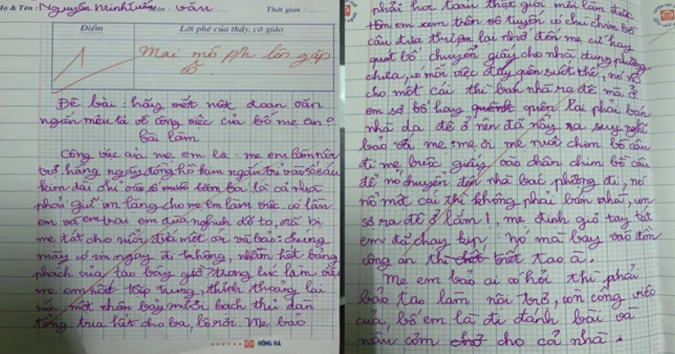 Họ & Tên: Nguyễn Minh Tuấn văn Thời gian:
Điểm
Lời phê của thầy, cô giáo
1
Mai mố ph lên gặp
cô
Đề bài: hãy viết một đoạn văn
ngắn miêu tả về công việc của bố mẹ em?
bài làm
Công việc của mẹ em là: mẹ em làm nội
trợ hằng ngày đồng hồ kim ngắn trỏ vào số sáu
kim dài chỉ vào số mười là cả nhà
phải giữ im lặng cho mẹ em làm việc. có lần
em và em trai em đùa nghịch to, và bị
mẹ tát cho mỗi đứa một cái và bảo: chúng
mày có im ngay đi không, nhầm hết bảng
phách của tao bây giờ. Tương lúc làm việc
mẹ em rất tập trung, thỉnh thoảng lại
một nhân bảy mười bạch thủ dàn
tổng trừ hết cho ba, lô rơi. Mẹ bảo
HỒNG HÀ
phải học toán thật giỏi mới làm được
hôm em xem trên vô tuyến có chú chim bồ
câu đưa thư em lại nhớ đến mẹ cứ hay
quát bố chuyển giấy cho nhà dung phường
chưa, có mỗi việc đấy quên suốt thế, nó nổ
cho một cái thì bán nhà ra đê mà ở
em sợ bố hay quên quên lại phải bán
nhà ra đê ở nên đã nảy ra suy nghĩ
bảo với mẹ: mẹ ơi mẹ nuôi chim bồ câu
đi mẹ buộc giấy vào chân chim bồ câu
để nó chuyển đến nhà bác phường đi, nó
nổ một cái thì không phải bán nhà, con
sợ ra đê ở lắm!, mẹ định giơ tay tát
em đã chạy kịp, nó mà bay vào đồn
công an thì chết tao à.
Mẹ em bảo ai có hỏi thì phải
bảo tao làm nội trợ, còn công việc
của bố em là đi đánh bài và
nấu cơm chở cho cả nhà.